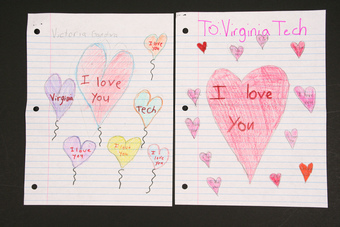 Victoria
I love
you
I love
you
Virginia
Tech
I love
you
I love
you
I
love
you
To Virginia Tech
I love
You